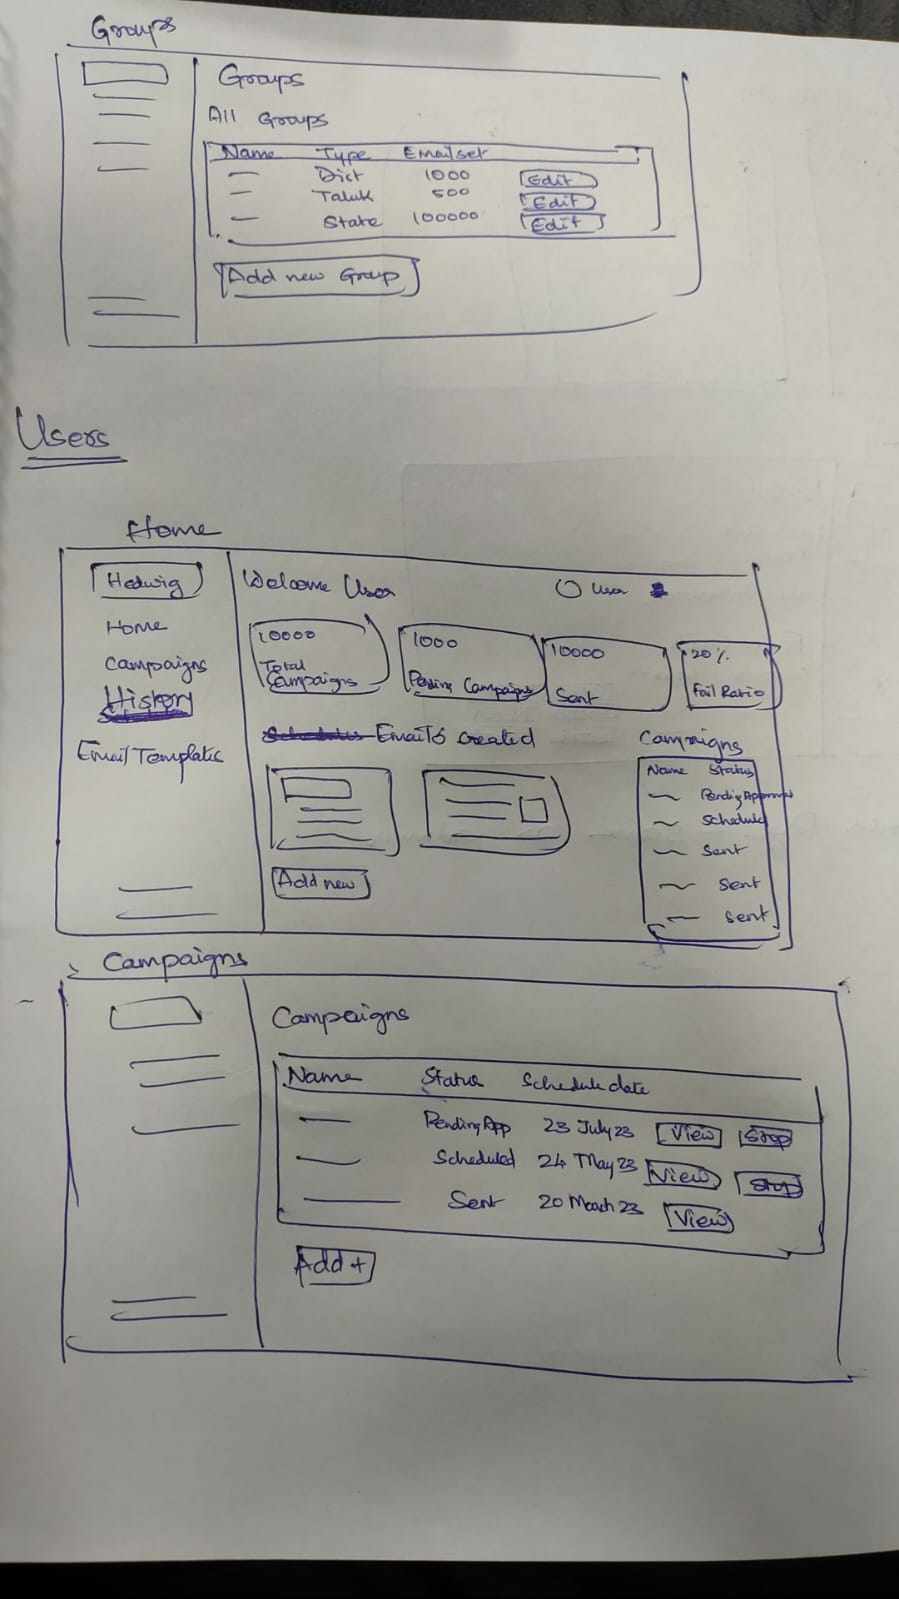 Groups
Groups
All Groups
Name Type Emailset
Dist 1000 Edit
Taluk 500 Edit
State 100000 Edit
Add new Group
Users
Home
Hedwig
Home
Campaigns
History
Email Templates
Welcome User
User
10000
Total
Campaigns
1000
Pending Campaigns
10000
Sent
20%
Fail Ratio
Emails created
Add new
Campaigns
Name Status
Pending Approval
Scheduled
Sent
Sent
Sent
Campaigns
Campaigns
Name Status Schedule date
Pending App 23 July 23 View Stop
Scheduled 24 May 23 View Stop
Sent 20 March 23 View
Add +